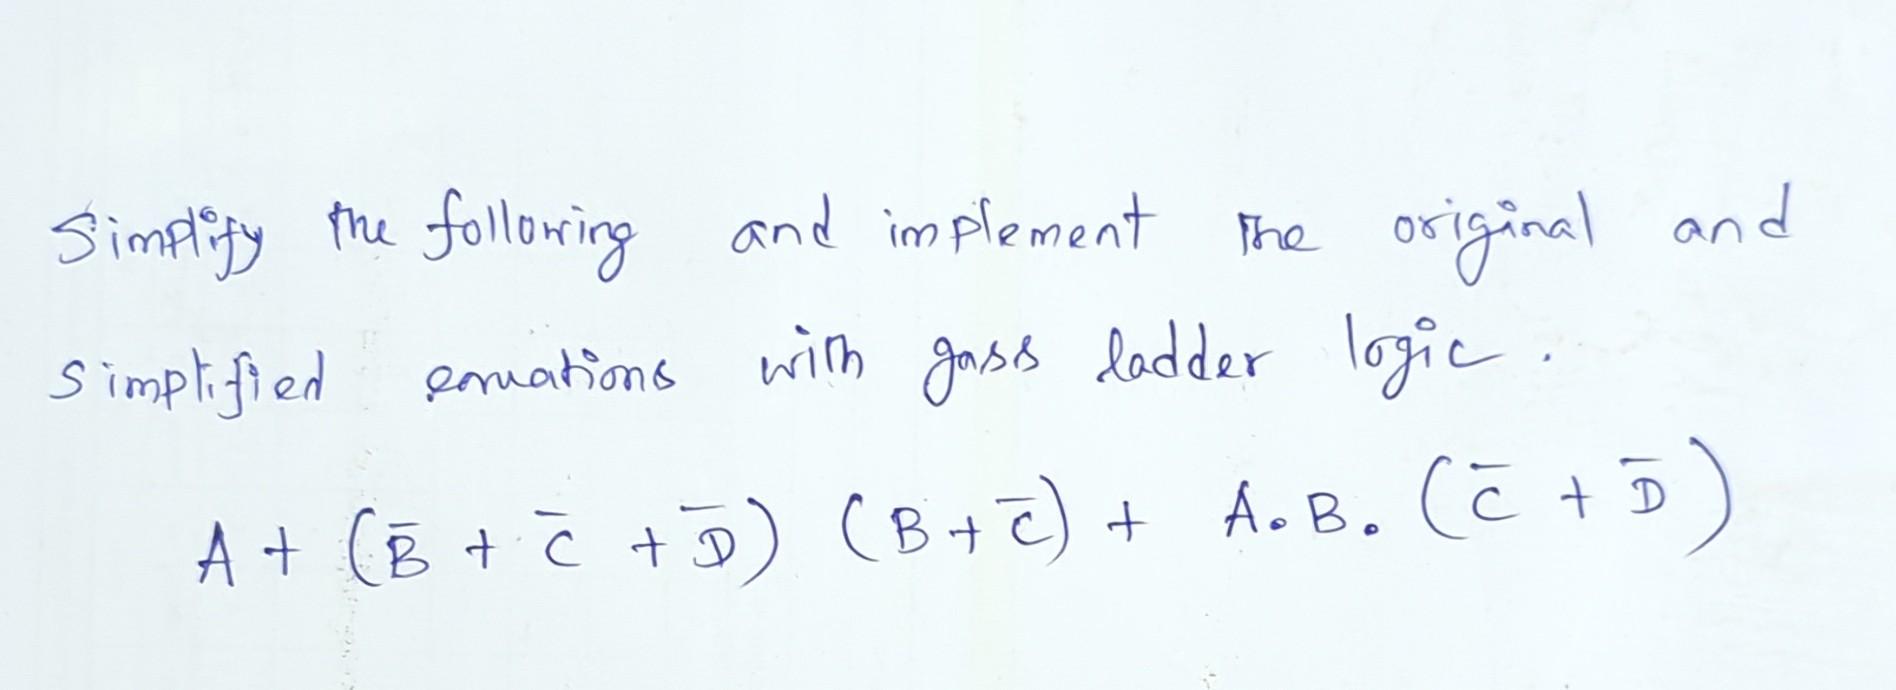 Simplify the following and implement The original and
simplified equations with gass ladder logic.
A + (B̅ + C̅ + D̅) (B + C̅) + A.B. (C̅ + D̅)